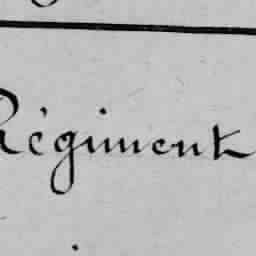 Régiment